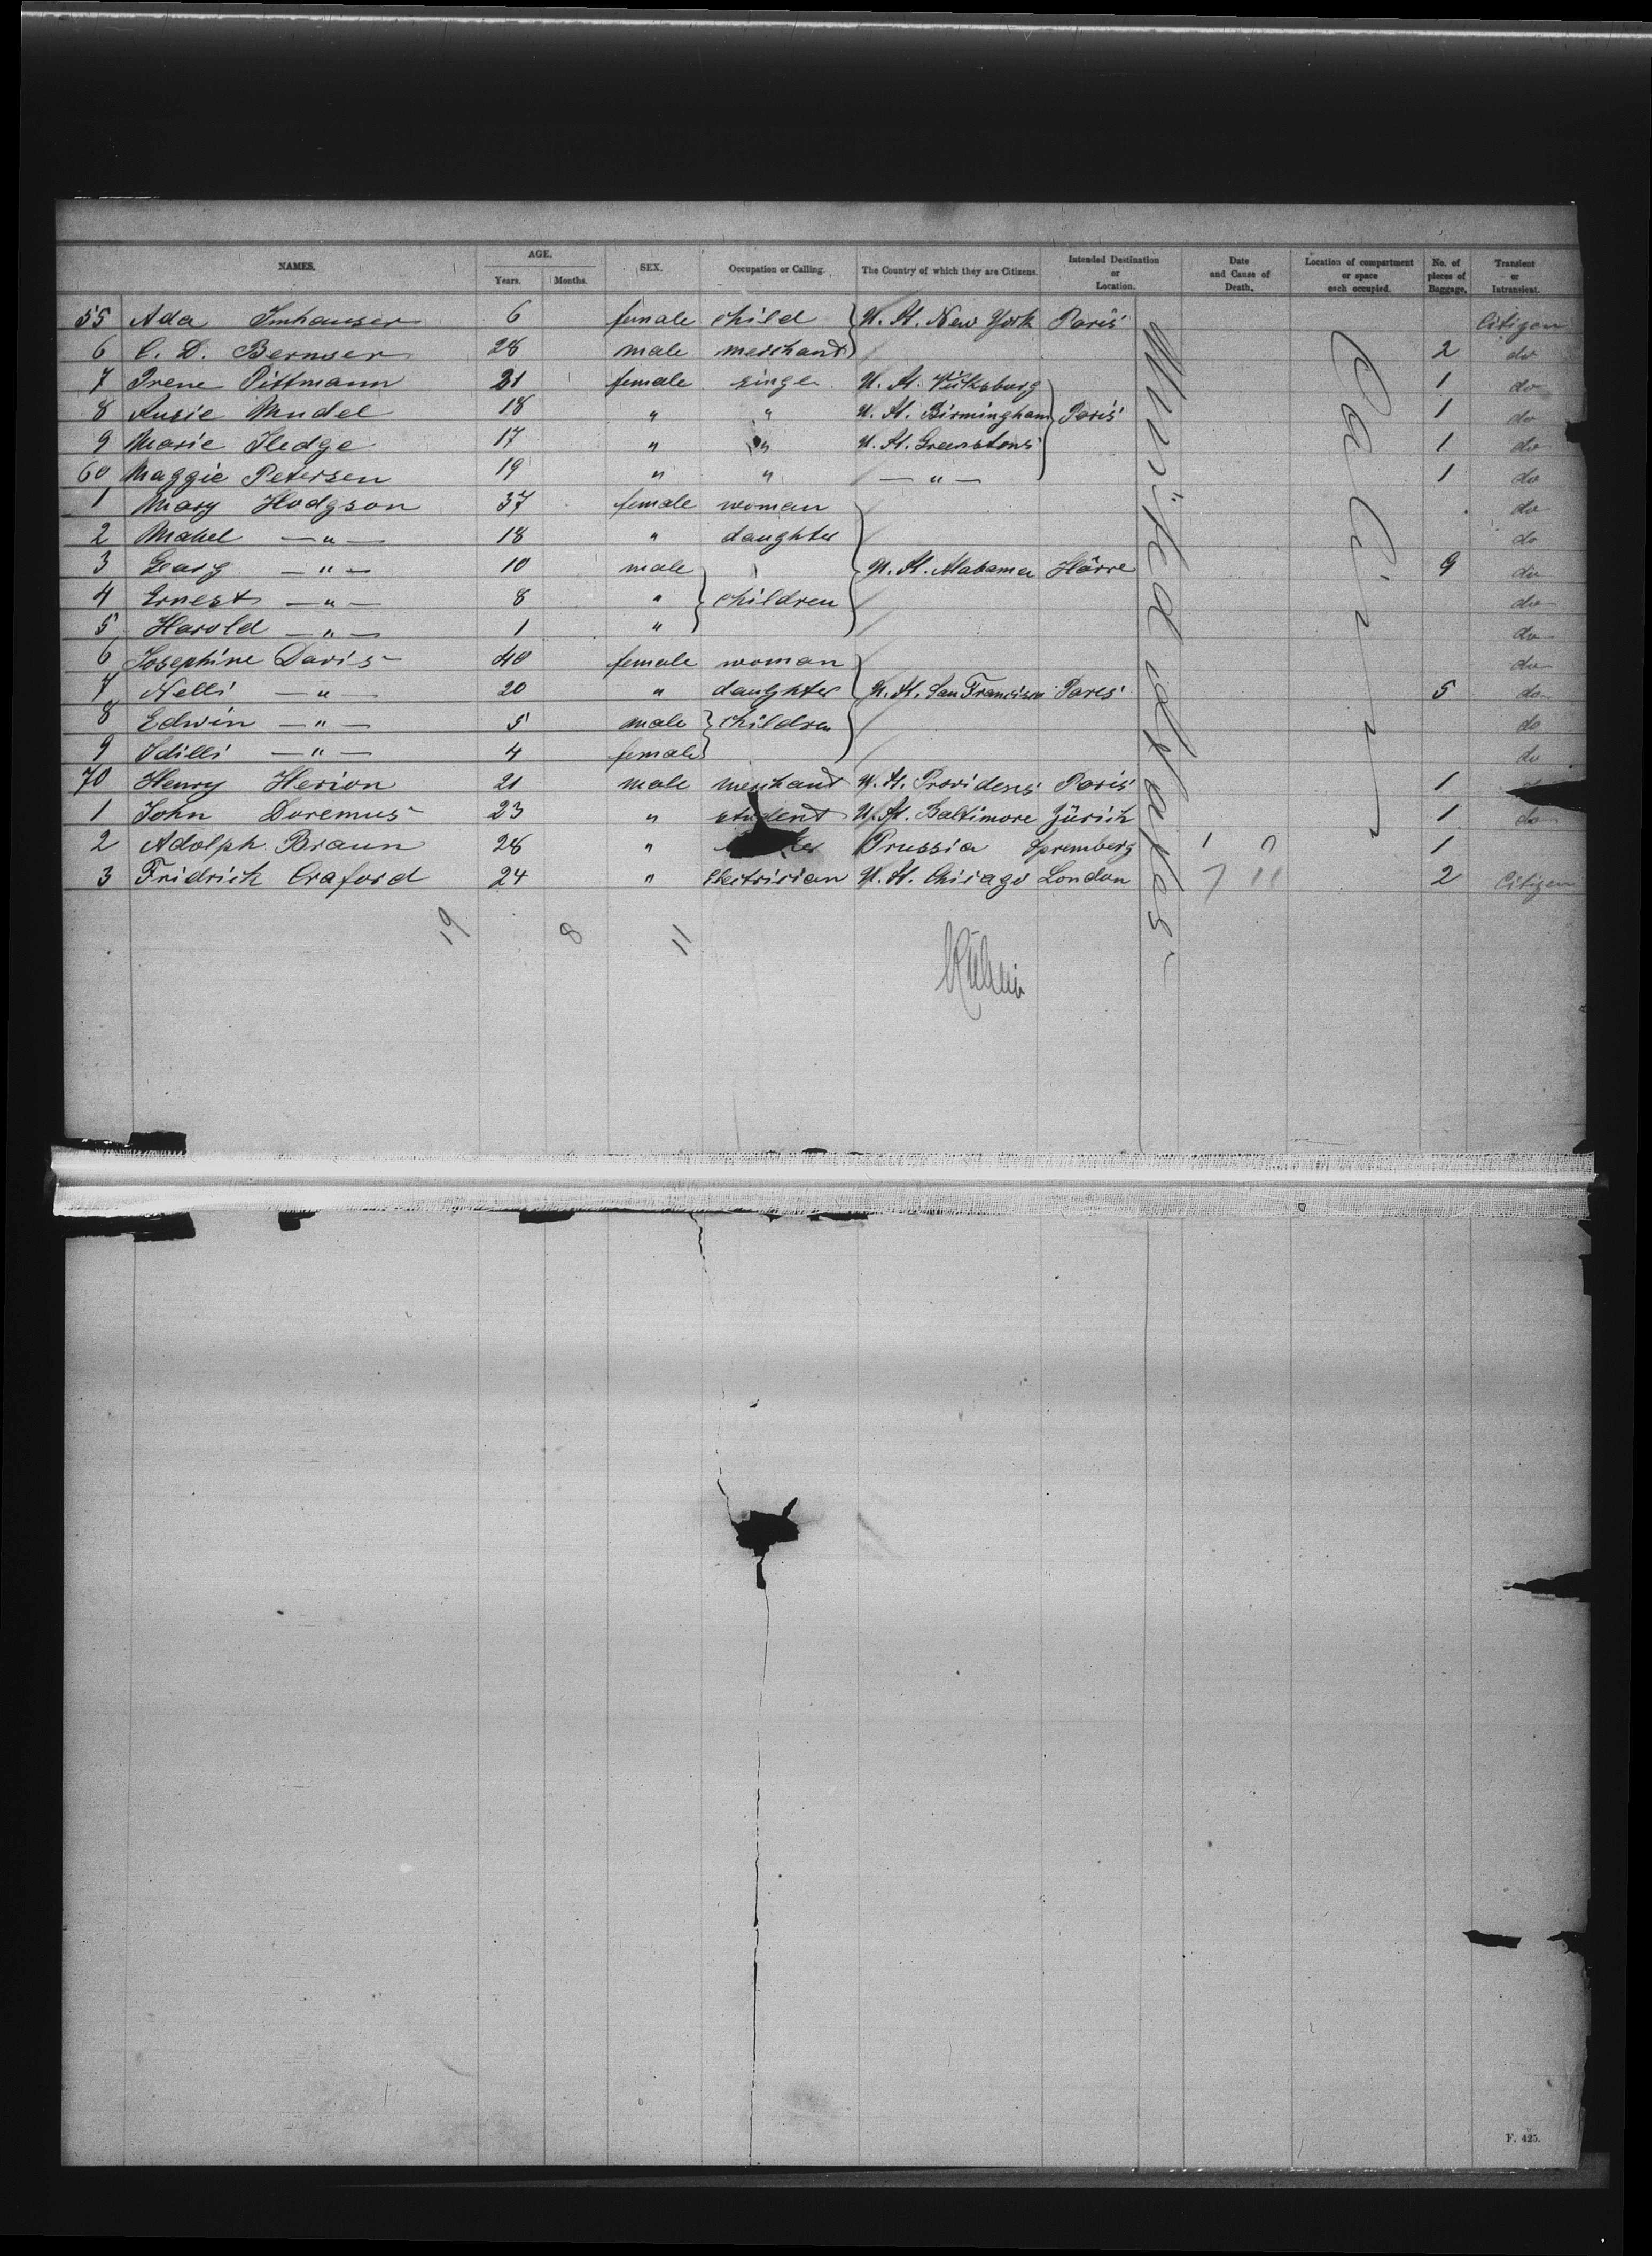 NAMES. AGE. Years. Months. SEX. Occupation or Calling. The Country of which they are Citizens. Intended Destination or Location. Date and Cause of Death. Location of compartment or space each occupied. No. of pieces of Baggage. Transient or Intransient.
55 Ada Imhauser 6 female child U. St. New York Paris Citizen
6 C. D. Bernser 28 male merchant 2 do
7 Irene Pittmann 21 female single U. St. Vicksburg 1 do
8 Ausie Mudel 18 " " U. St. Birmingham Paris 1 do
9 Marie Sledge 17 " " U. St. Greenstons 1 do
60 Maggie Petersen 19 " " — " — 1 do
1 Mary Hodgson 37 female woman do
2 Mabel — " — 18 " daughter do
3 Georg — " — 10 male U. St. Alabama Hâvre 9 do
4 Ernest — " — 8 " children do
5 Harold — " — 1 " do
6 Josephine Davis 40 female woman do
7 Nelli — " — 20 " daughter U. St. San Francisco Paris 5 do
8 Edwin — " — 5 male children do
9 Idilli — " — 4 female do
70 Henry Herion 21 male merchant U. St. Providens Paris 1
1 John Doremus 23 " student U. St. Baltimore Zürich 1 do
2 Adolph Braun 28 " Prussia Spremberg 1
3 Fridrich Craford 24 " Electrician U. St. Chicago London 2 Citizen
United States
19 8 11
F. 425.